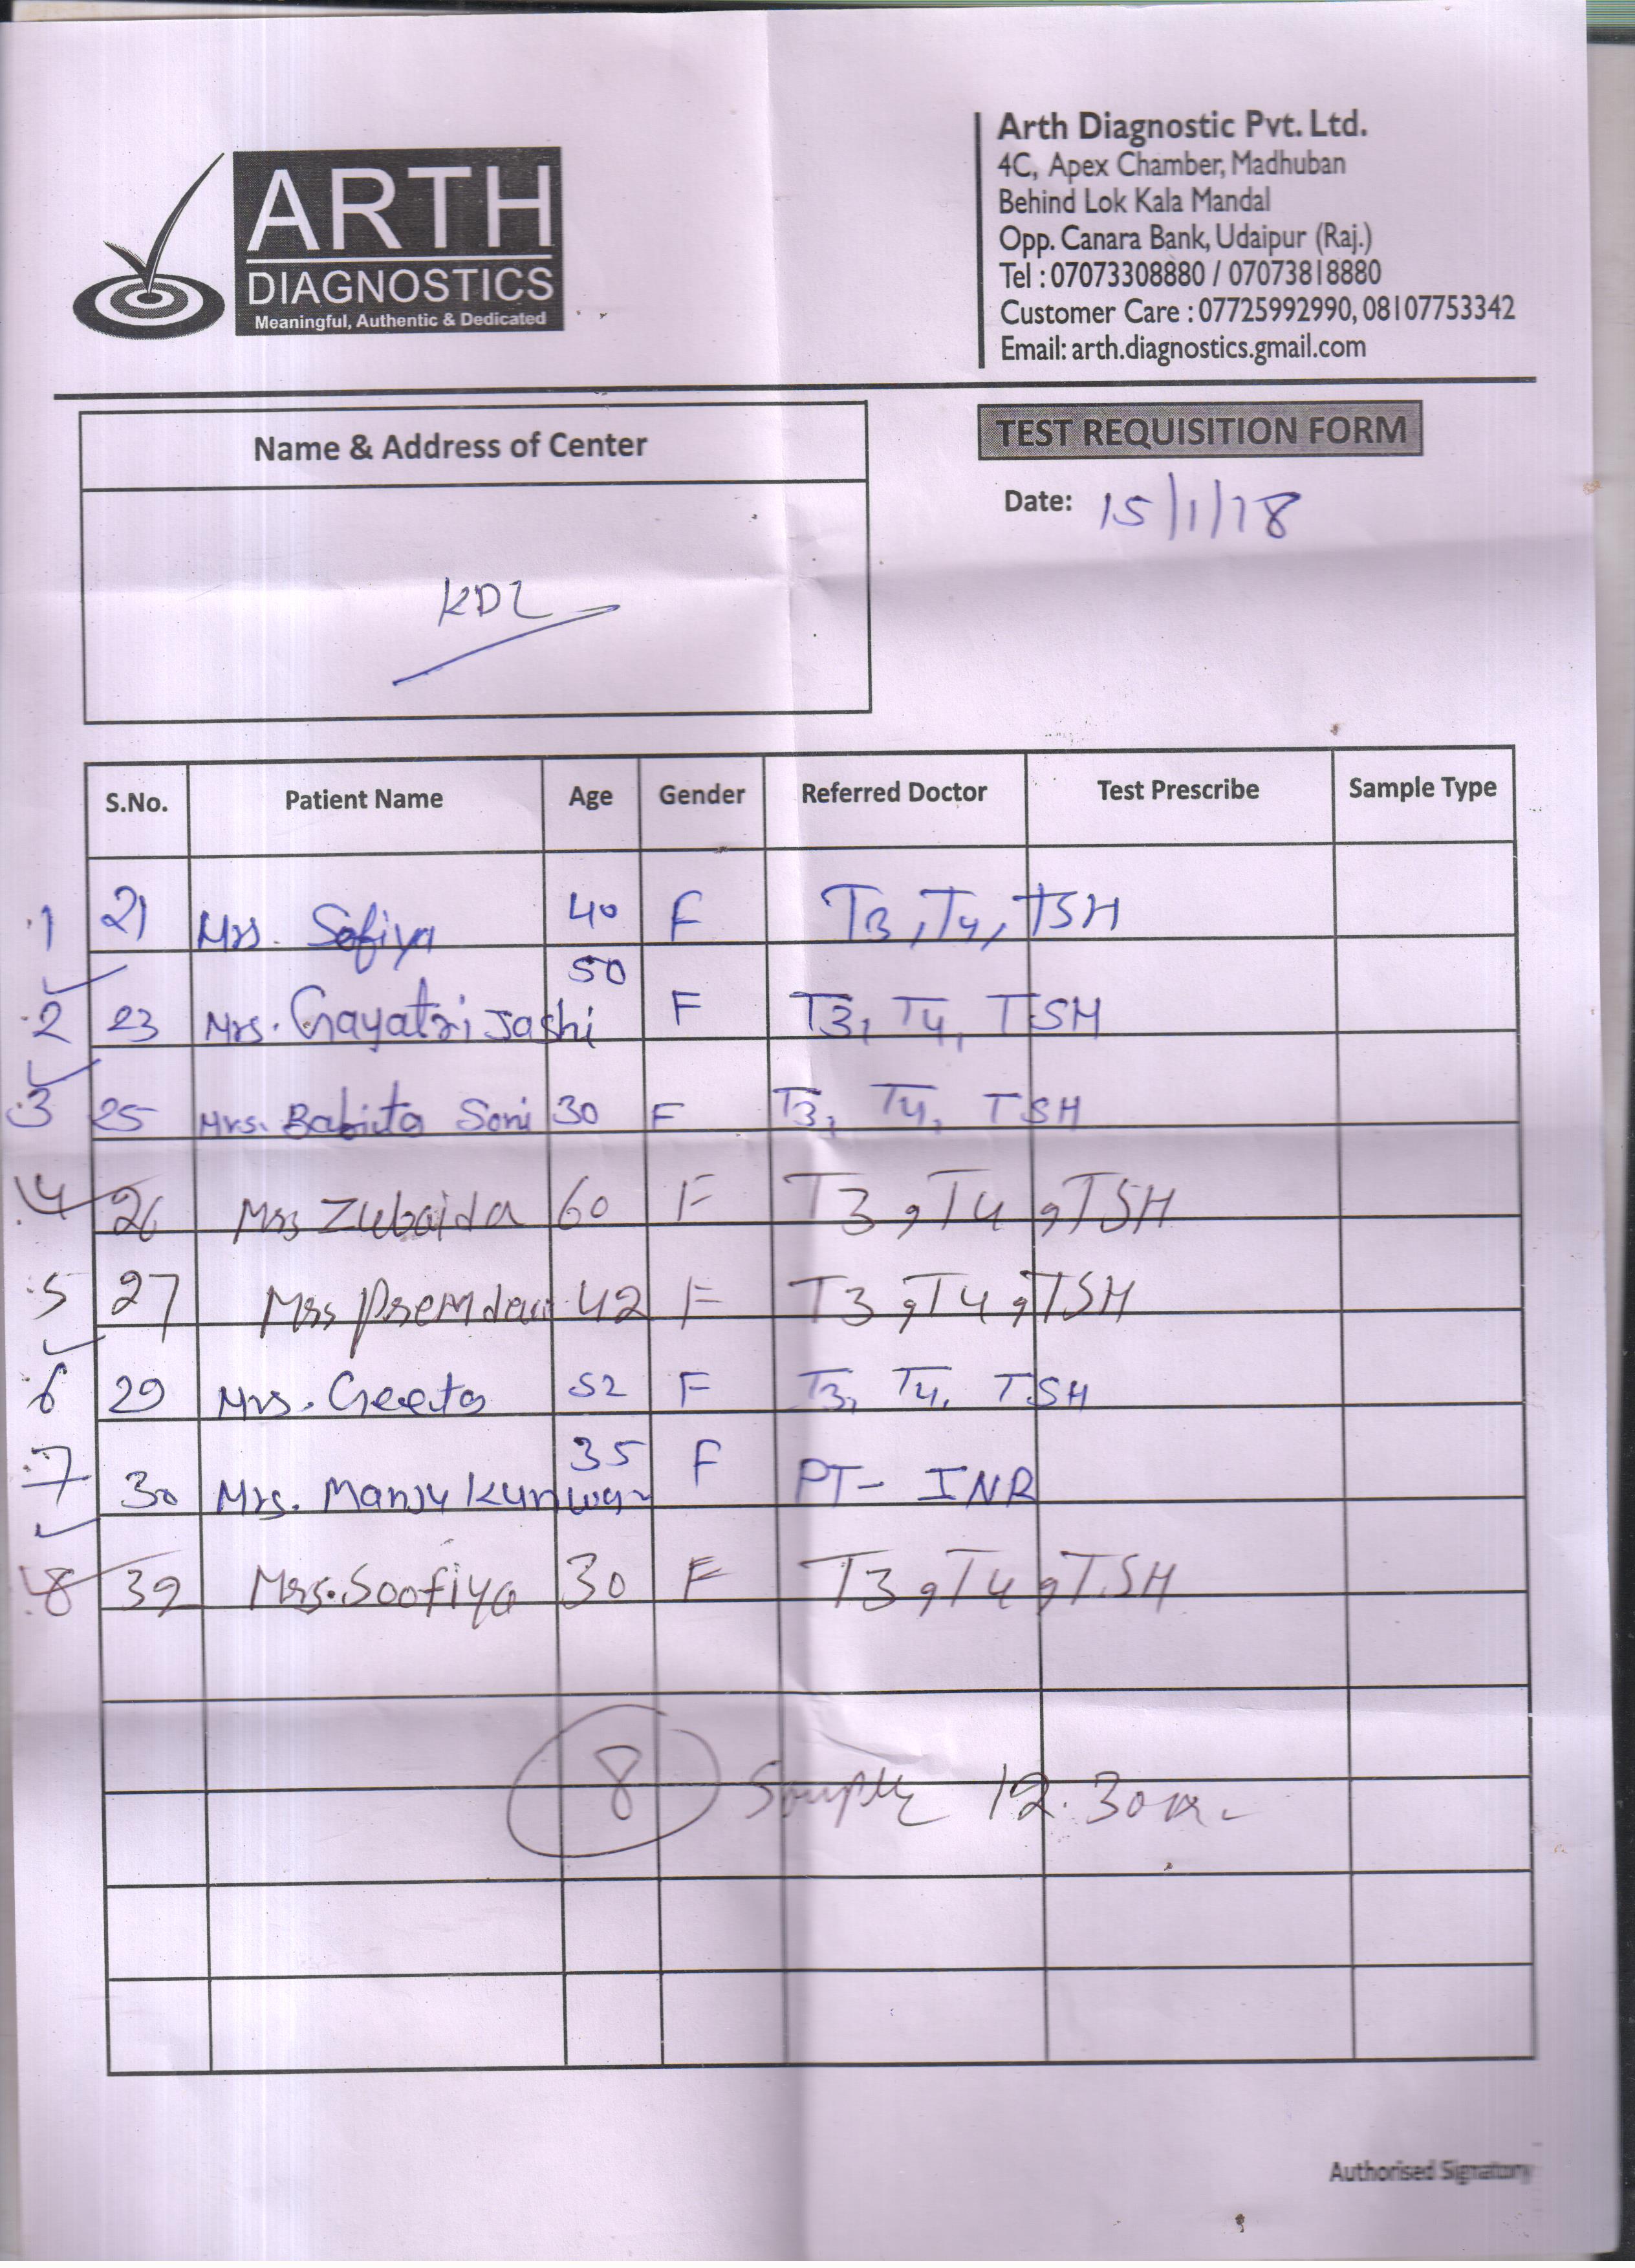 ARTH
DIAGNOSTICS
Meaningful, Authentic & Dedicated
Arth Diagnostic Pvt. Ltd.
4C, Apex Chamber, Madhuban
Behind Lok Kala Mandal
Opp. Canara Bank, Udaipur (Raj.)
Tel : 07073308880 / 07073818880
Customer Care : 07725992990, 08107753342
Email: arth.diagnostics.gmail.com
Name & Address of Center
TEST REQUISITION FORM
Date: 15/1/18
KDL
S.No. Patient Name Age Gender Referred Doctor Test Prescribe Sample Type
1 21 Mrs. Sofiya 40 F T3, T4, TSH
2 23 Mrs. Gayatri Joshi 50 F T3, T4, TSH
3 25 Mrs. Babita Soni 30 F T3, T4, TSH
4 26 Mrs Zubaida 60 F T3, T4, TSH
5 27 Mrs Prem devi 42 F T3, T4, TSH
6 29 Mrs. Geeta 52 F T3, T4, TSH
7 30 Mrs. Manju Kunwar 35 F PT- INR
8 39 Mrs. Soofiya 30 F T3, T4, TSH
8 Sample 12.30
Authorised Signatory